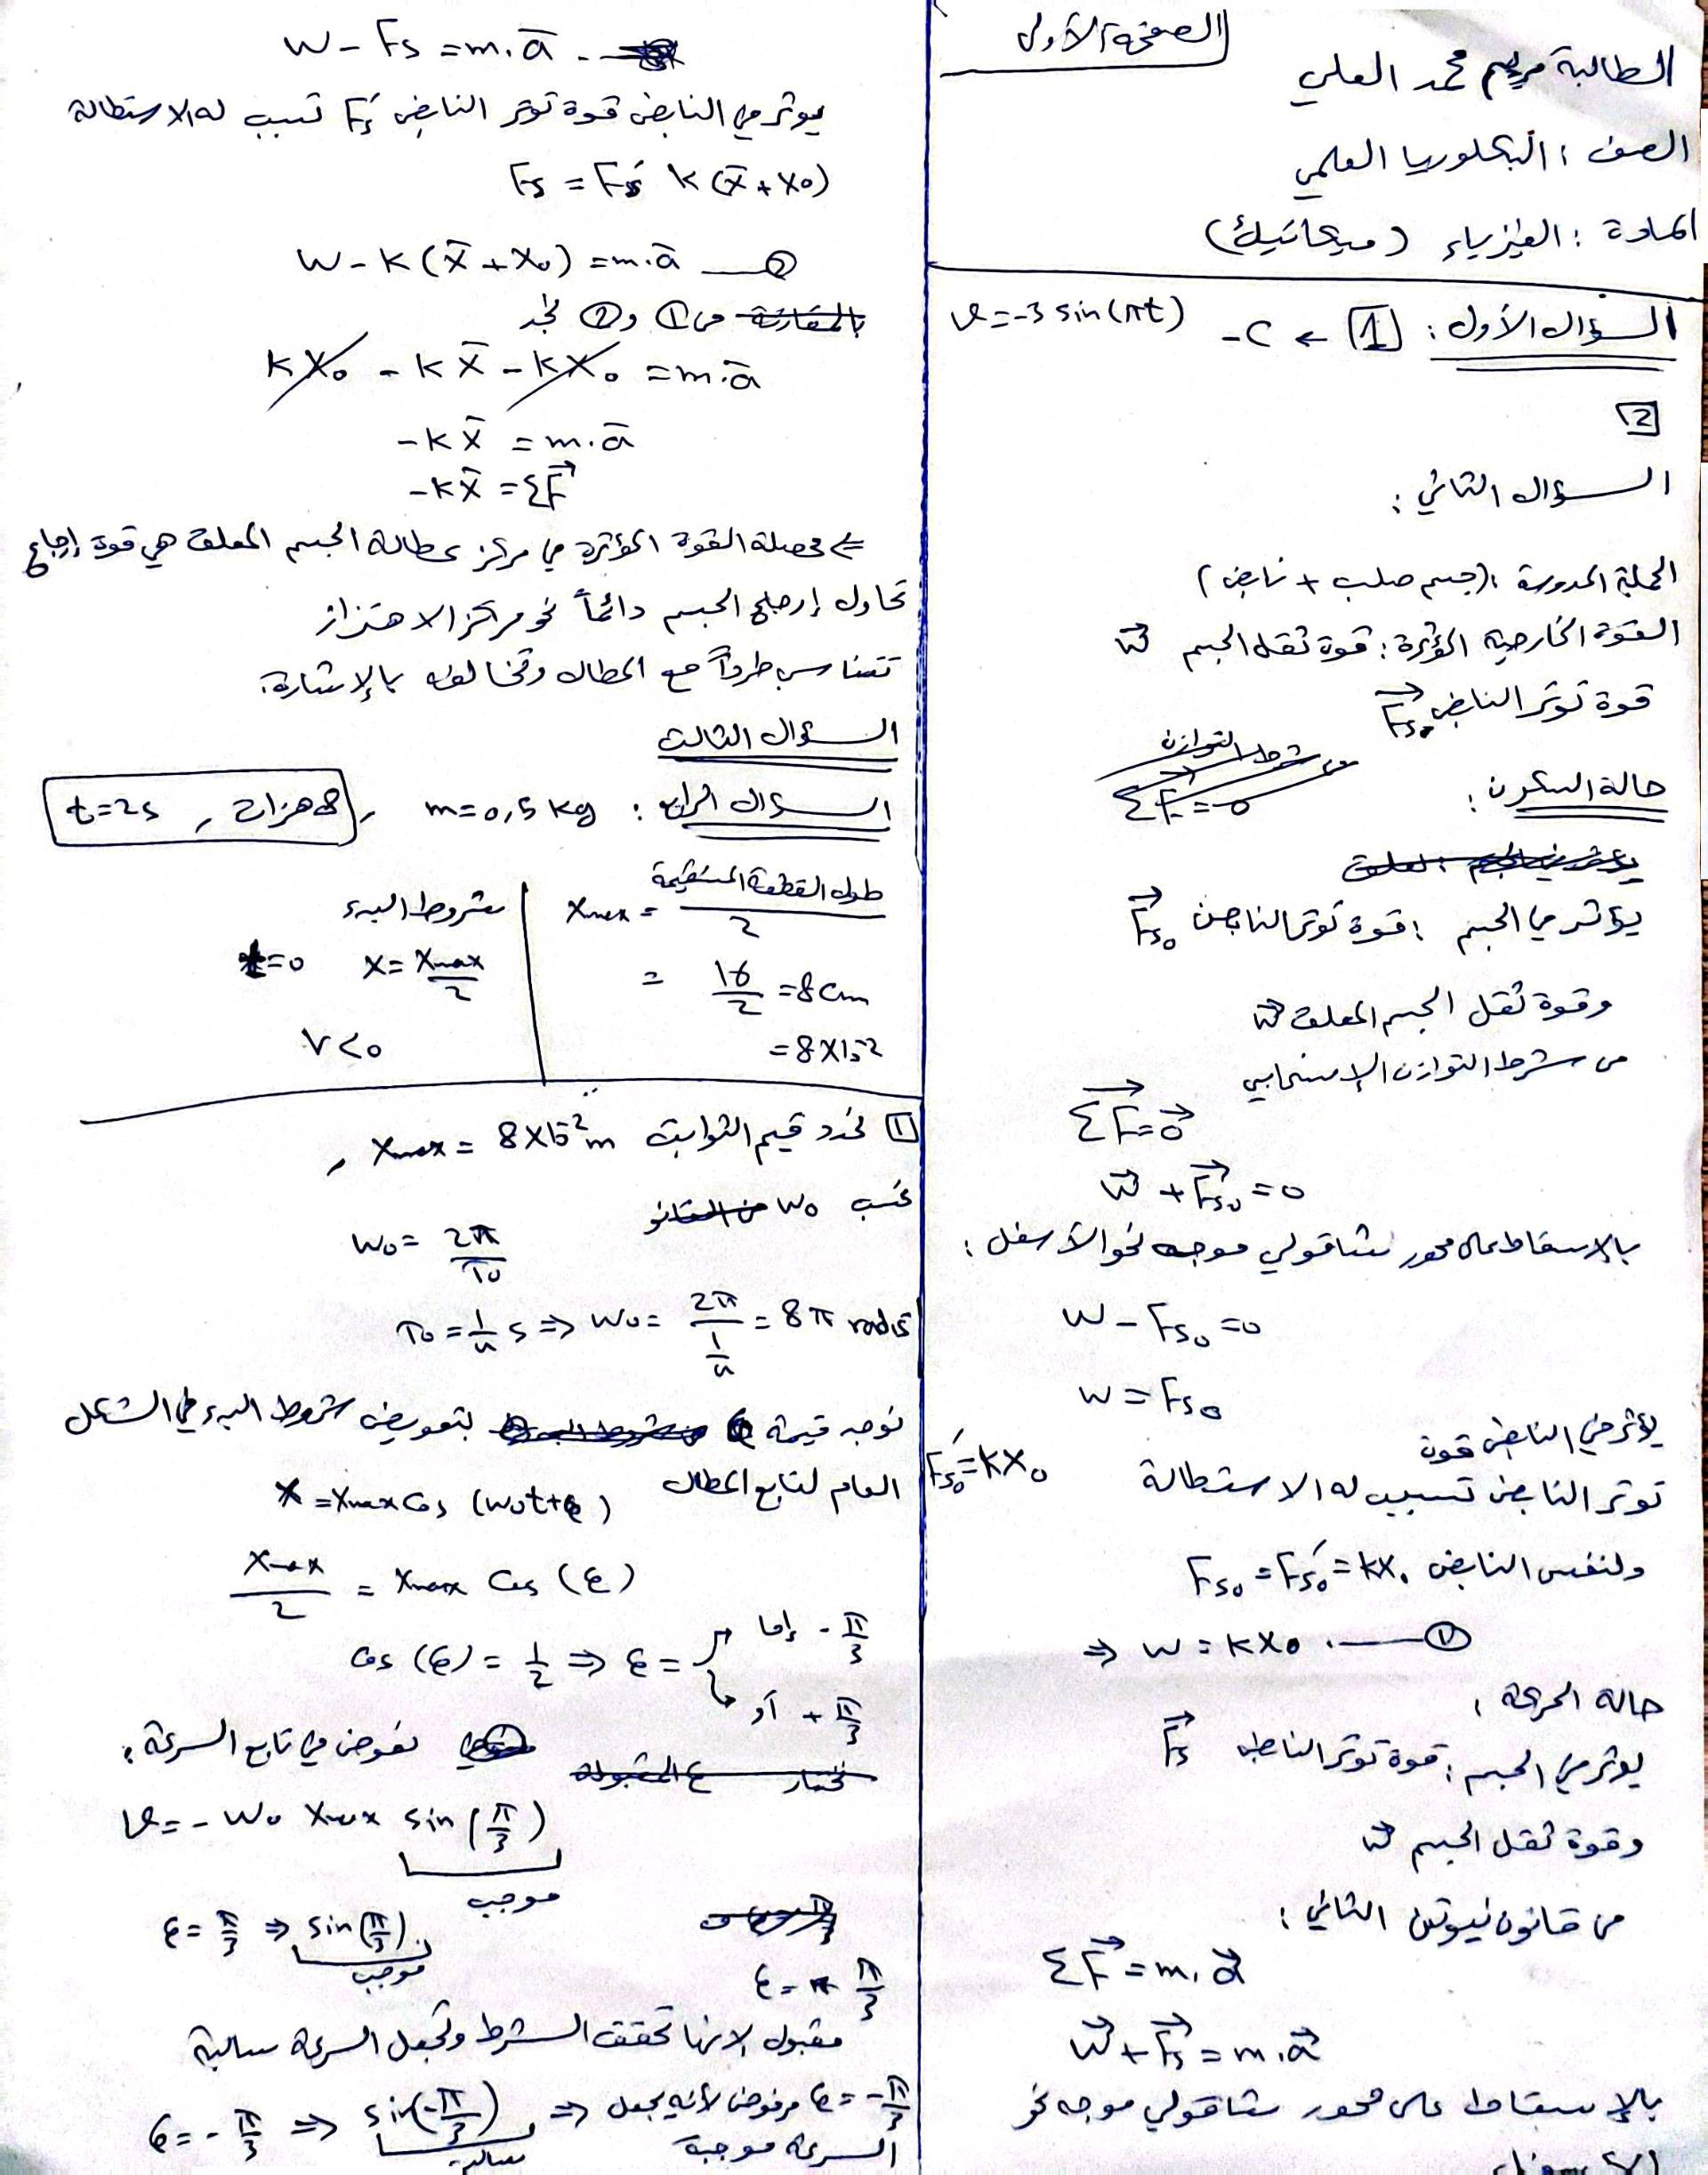 الصفحة الأولى
الطالبة مريم محمد العلي
الصف : البكلوريا العلمي
المادة : الفيزياء (ميكانيك)
السؤال الأول : [1] ← C- v = -3 sin(πt)
[2]
السؤال الثاني :
الجملة المدروسة : (جسم صلب + نابض)
القوة الخارجية المؤثرة : قوة ثقل الجسم W⃗
قوة توتر النابض F⃗s₀
حالة السكون :
من شرط التوازن
ΣF⃗ = 0
يؤثر في الجسم : قوة توتر النابض F⃗s₀
وقوة ثقل الجسم المعلق W⃗
من شرط التوازن الإنسحابي
ΣF⃗ = 0⃗
W⃗ + F⃗s₀ = 0
بالإسقاط على محور شاقولي موجه نحو الأسفل :
W - Fs₀ = 0
W = Fs₀
يؤثر في النابض قوة
توتر النابض تسبب له الاستطالة F's₀ = kx₀
ولنفس النابض Fs₀ = F's₀ = kx₀
⇒ W = kx₀ . —①
حالة الحركة :
يؤثر في الجسم : قوة توتر النابض F⃗s
وقوة ثقل الجسم W⃗
من قانون نيوتن الثاني :
ΣF⃗ = m . a⃗
W⃗ + F⃗s = m . a⃗
بالإسقاط على محور شاقولي موجه نحو
الأسفل
W - Fs = m . a̅ .
يؤثر في النابض قوة توتر النابض F's تسبب له الاستطالة
Fs = F's k(x̅ + x₀)
W - k(x̅ + x₀) = m . a̅ —②
بالمقارنة من ① و ② نجد
kx₀ - kx̅ - kx₀ = m . a̅
-kx̅ = m . a̅
-kx̅ = ΣF⃗
⇐ محصلة القوة المؤثرة في مركز عطالة الجسم المعلق هي قوة إرجاع
تحاول إرجاع الجسم دائماً نحو مركز الاهتزاز
تتناسب طرداً مع المطال وتخالفه بالإشارة.
السؤال الثالث
السؤال الرابع : m = 0,5 kg , 8 هزات , t = 2s
xmax = طول القطعة المستقيمة / 2
= 16/2 = 8 cm
= 8×10⁻²
شروط البدء
t = 0 x = xmax/2
v < 0
[1] نحدد قيم الثوابت xmax = 8×10⁻² m ,
نحسب ω₀
ω₀ = 2π/T₀
T₀ = 1/4 s ⇒ ω₀ = 2π/(1/4) = 8π rad.s⁻¹
نوجد قيمة φ بتعويض شروط البدء في الشكل
العام لتابع المطال x = xmax cos(ω₀t + φ)
xmax/2 = xmax cos(φ)
cos(φ) = 1/2 ⇒ φ = إما - π/3
أو + π/3
نختار φ المقبولة
نعوض في تابع السرعة :
v = - ω₀ xmax sin(π/3)
موجب
φ = π/3 ⇒ sin(π/3)
موجب
φ = + π/3
مقبول لانها تحقق الشرط وتجعل السرعة سالبة
φ = -π/3 ⇒ sin(-π/3) ⇒ φ = -π/3 مرفوض لأنه يجعل
سالب السرعة موجبة